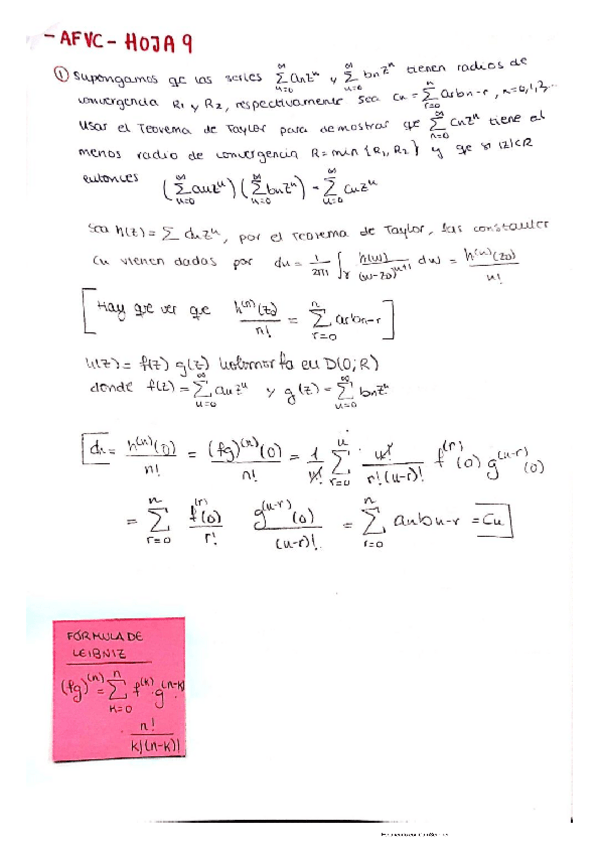 - AFVC - HOJA 9
① Supongamos qe las series ∑_{n=0}^{∞} anzⁿ y ∑_{n=0}^{∞} bnzⁿ tienen radios de
convergencia R₁ y R₂, respectivamente sea Cn = ∑_{r=0}^{n} arbn-r, n=0,1,2...
Usar el Teorema de Taylor para demostrar qe ∑_{n=0}^{∞} cnzⁿ tiene al
menos radio de convergencia R=min{R₁,R₂} y qe si |z|<R
entonces (∑_{n=0}^{∞} anzⁿ)(∑_{n=0}^{∞} bnzⁿ) = ∑_{n=0}^{∞} cnzⁿ
Sea h(z) = ∑ dnzⁿ, por el teorema de Taylor, las constantes
Cn vienen dados por dn = 1/2πi ∫_γ h(w)/(w-z0)^{n+1} dw = h^{(n)}(z0)/n!
[Hay que ver que h^{(n)}(z0)/n! = ∑_{r=0}^{n} arbn-r]
h(z) = f(z) g(z) holomorfa en D(0;R)
donde f(z) = ∑_{n=0}^{∞} anzⁿ y g(z) = ∑_{n=0}^{∞} bnzⁿ
dn = h^{(n)}(0)/n! = (fg)^{(n)}(0)/n! = 1/n! ∑_{r=0}^{n} n!/r!(n-r)! f^{(r)}(0) g^{(n-r)}(0)
= ∑_{r=0}^{n} f^{(r)}(0)/r! g^{(n-r)}(0)/(n-r)! = ∑_{r=0}^{n} anbn-r = Cn
FÓRMULA DE
LEIBNIZ
(fg)^{(n)} = ∑_{k=0}^{n} f^{(k)} · g^{(n-k)}
· n!/k!(n-k)!